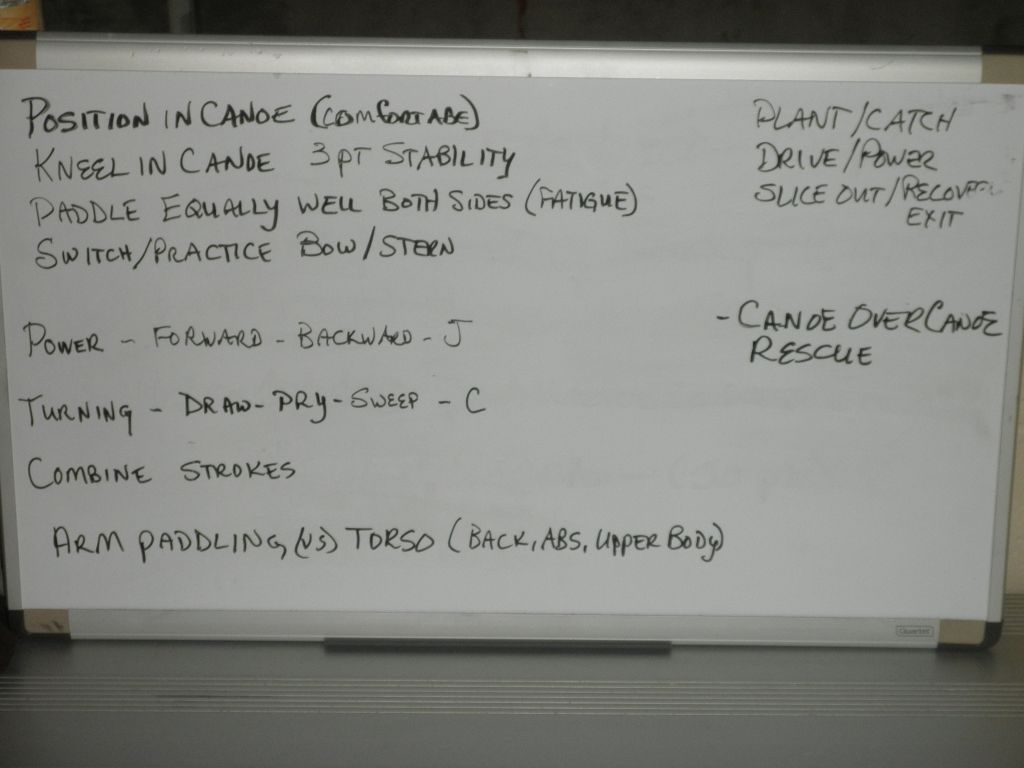 POSITION IN CANOE (COMFORTABE)
KNEEL IN CANOE 3 PT STABILITY
PADDLE EQUALLY WELL BOTH SIDES (FATIGUE)
SWITCH/PRACTICE BOW/STERN
POWER - FORWARD - BACKWARD - J
TURNING - DRAW - PRY - SWEEP - C
COMBINE STROKES
ARM PADDLING, (VS) TORSO (BACK, ABS, UPPER BODY)
PLANT/CATCH
DRIVE/POWER
SLICE OUT/RECOVER
EXIT
- CANOE OVER CANOE
RESCUE
Quartet